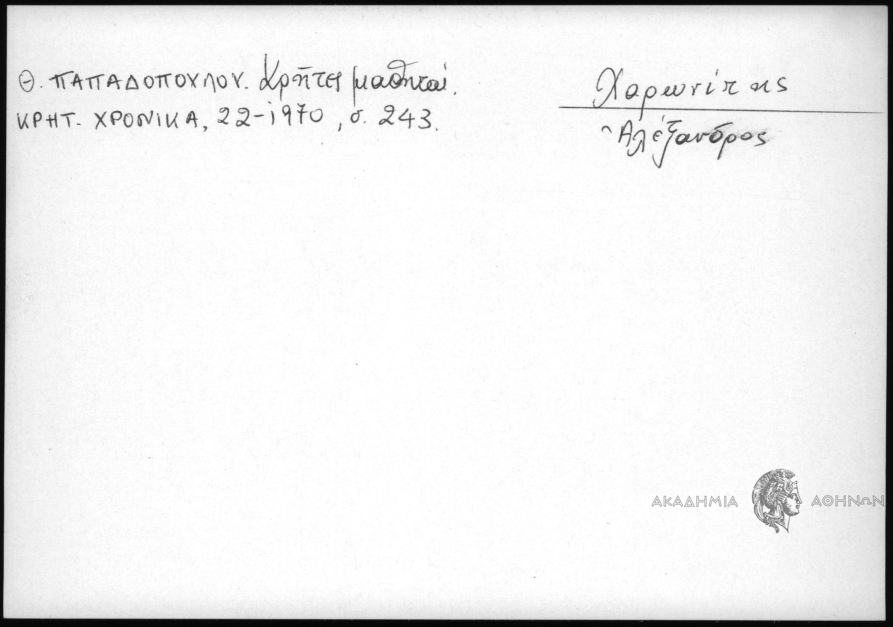 Θ. ΠΑΠΑΔΟΠΟΥΛΟΥ. Κρῆτες μαθηταί.
ΚΡΗΤ. ΧΡΟΝΙΚΑ, 22-1970, σ. 243.
Χαρωνίτης
Ἀλέξανδρος
ΑΚΑΔΗΜΙΑ ΑΘΗΝΩΝ